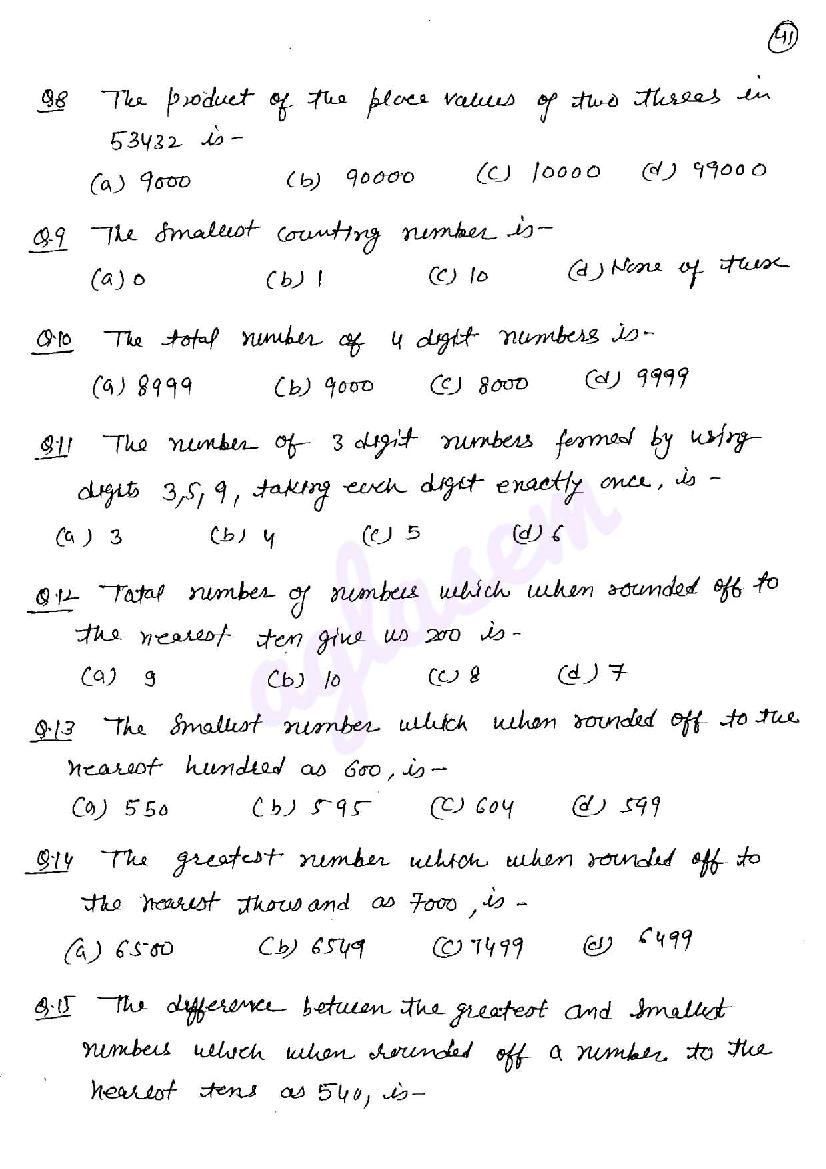 41
Q.8 The product of the place values of two threes in
53432 is -
(a) 9000 (b) 90000 (c) 10000 (d) 99000
Q.9 The smallest counting number is -
(a) 0 (b) 1 (c) 10 (d) None of these
Q.10 The total number of 4 digit numbers is -
(a) 8999 (b) 9000 (c) 8000 (d) 9999
Q.11 The number of 3 digit numbers formed by using
digits 3,5,9, taking each digit exactly once, is -
(a) 3 (b) 4 (c) 5 (d) 6
Q.12 Total number of numbers which when rounded off to
the nearest ten give us 200 is -
(a) 9 (b) 10 (c) 8 (d) 7
aglasem
Q.13 The smallest number which when rounded off to the
nearest hundred as 600, is -
(a) 550 (b) 595 (c) 604 (d) 599
Q.14 The greatest number which when rounded off to
the nearest thousand as 7000, is -
(a) 6500 (b) 6549 (c) 7499 (d) 6499
Q.15 The difference between the greatest and smallest
numbers which when rounded off a number to the
nearest tens as 540, is -